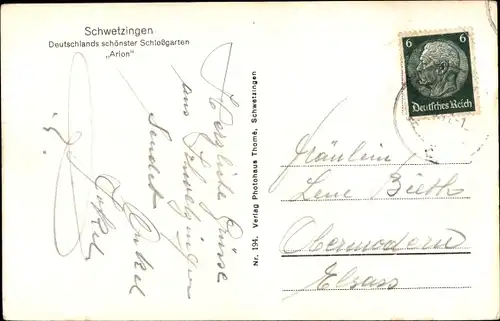 Schwetzingen
Deutschlands schönster Schloßgarten
„Arion"
Herzliche Grüsse
aus Schwetzingen
sendet Onkel
Nr. 194. Verlag Photohaus Thomé, Schwetzingen
6 6
Deutsches Reich
Fräulein
Lene Bieth
Obermodern
Elsass